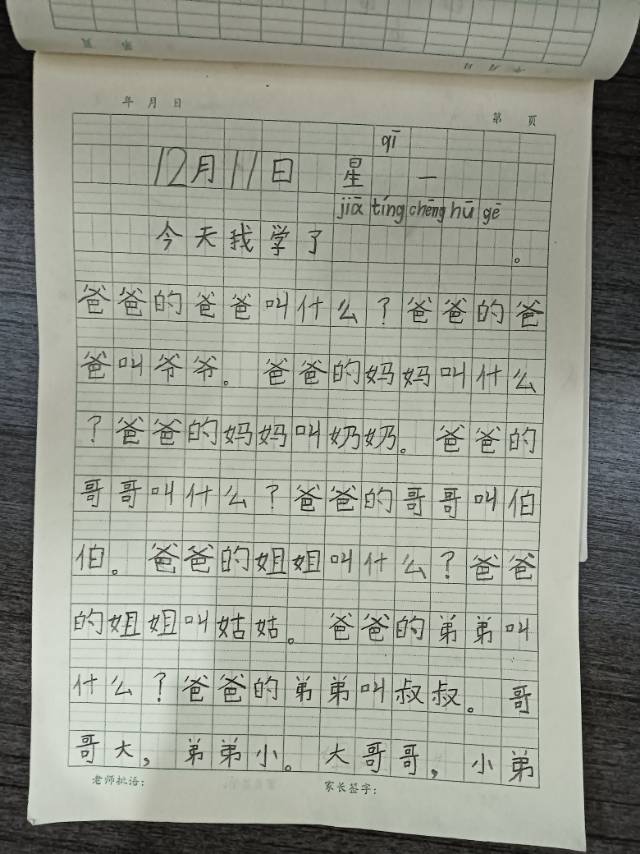 年 月 日 第 页
qī
12月11日 星 一
jiā tíng chēng hū gē
今天我学了 。
爸爸的爸爸叫什么？爸爸的爸
爸叫爷爷。爸爸的妈妈叫什么
？爸爸的妈妈叫奶奶。爸爸的
哥哥叫什么？爸爸的哥哥叫伯
伯。爸爸的姐姐叫什么？爸爸
的姐姐叫姑姑。爸爸的弟弟叫
什么？爸爸的弟弟叫叔叔。哥
哥大，弟弟小。大哥哥，小弟
老师批语： 家长签字：